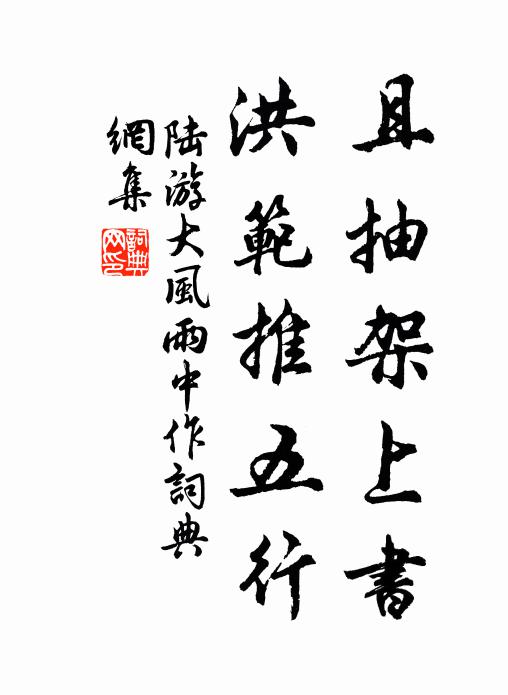 且抽架上書
洪範推五行
陸游大風雨中作詞典
網集
詞典
网印